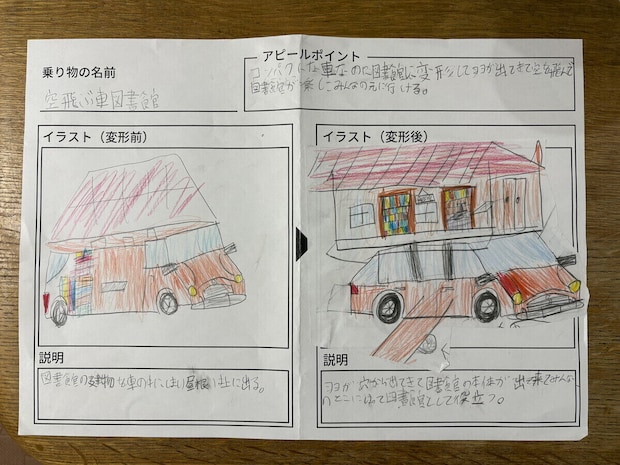 乗り物の名前
空飛ぶ車図書館
アピールポイント
コンパクトな車なのに図書館に変形してヨヨが出てきて空を飛んで
図書館が楽しみみんなの元に行ける。
イラスト（変形前）
イラスト（変形後）
説明
図書館の建物は車の中にはいり屋根は上に出る。
説明
ヨヨが穴から出てきて図書館の本体が出て来てみんな
のとこにいって図書館として役立つ。